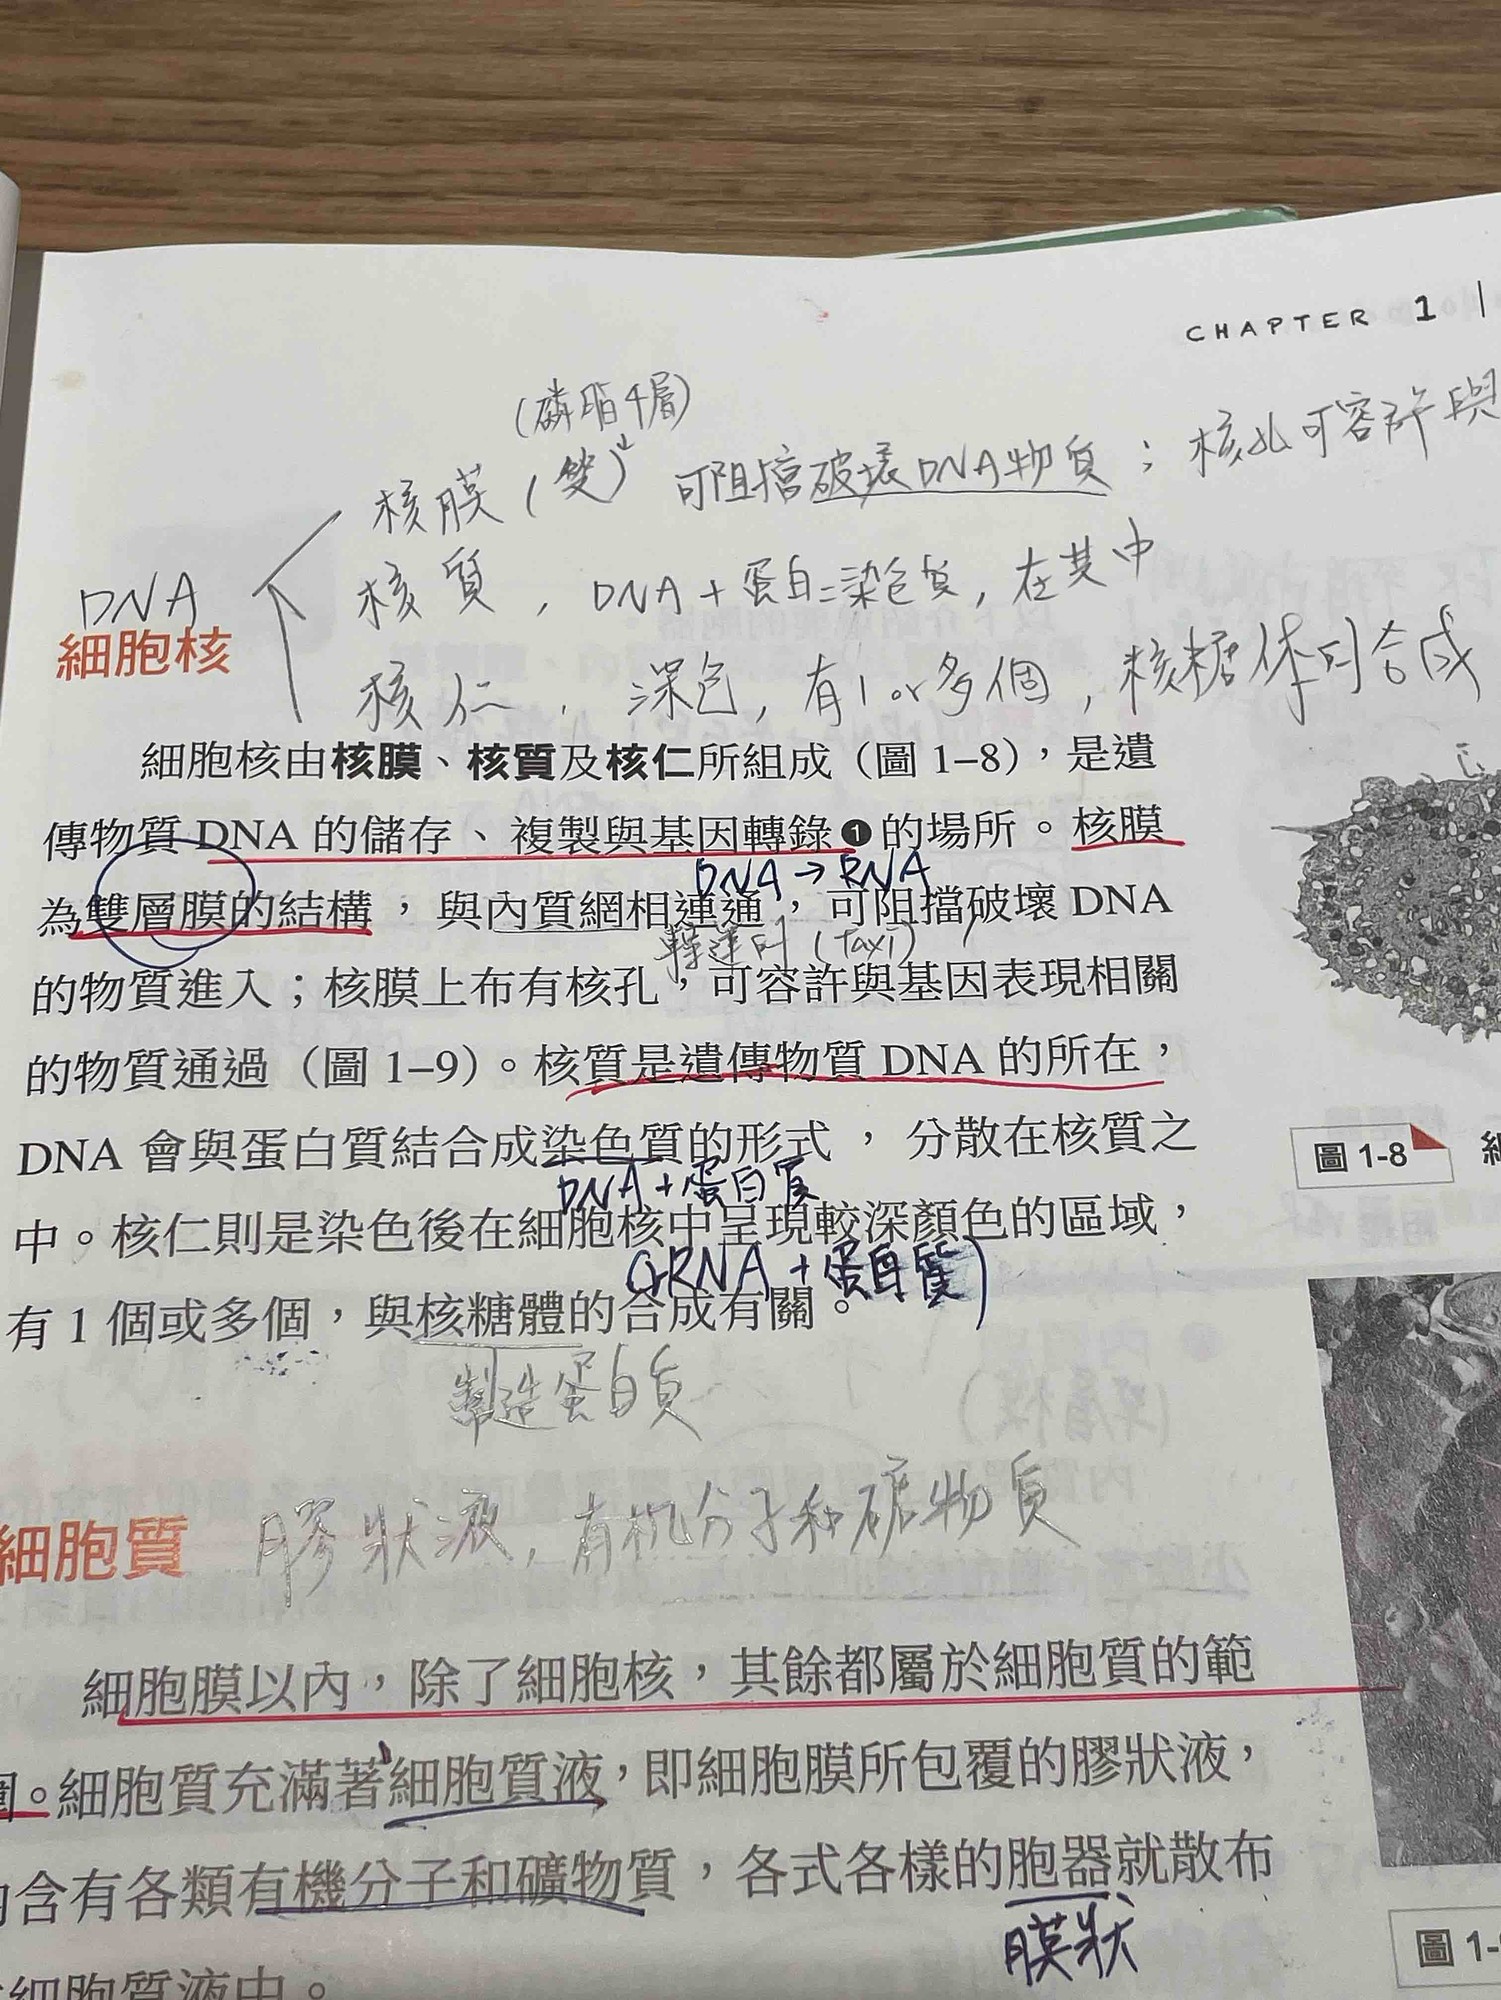 CHAPTER 1
(磷脂4層)
核膜(雙) 可阻擋破壞DNA物質；核孔可容許與
核質，DNA+蛋白=染色質，在其中
DNA
細胞核
核仁，深色，有1or多個，核糖体的合成
細胞核由核膜、核質及核仁所組成（圖 1–8），是遺
傳物質 DNA 的儲存、複製與基因轉錄❶的場所。核膜
DNA→RNA
為雙層膜的結構，與內質網相連通，可阻擋破壞 DNA
(taxi)
的物質進入；核膜上布有核孔，可容許與基因表現相關
的物質通過（圖 1–9）。核質是遺傳物質 DNA 的所在，
DNA 會與蛋白質結合成染色質的形式，分散在核質之
DNA+蛋白質
中。核仁則是染色後在細胞核中呈現較深顏色的區域，
(rRNA+蛋白質)
有 1 個或多個，與核糖體的合成有關。
製造蛋白質
圖 1-8
細胞質
膠狀液，有机分子和礦物質
細胞膜以內，除了細胞核，其餘都屬於細胞質的範
圍。細胞質充滿著細胞質液，即細胞膜所包覆的膠狀液，
內含有各類有機分子和礦物質，各式各樣的胞器就散布
膜狀
細胞質液中。
圖 1-